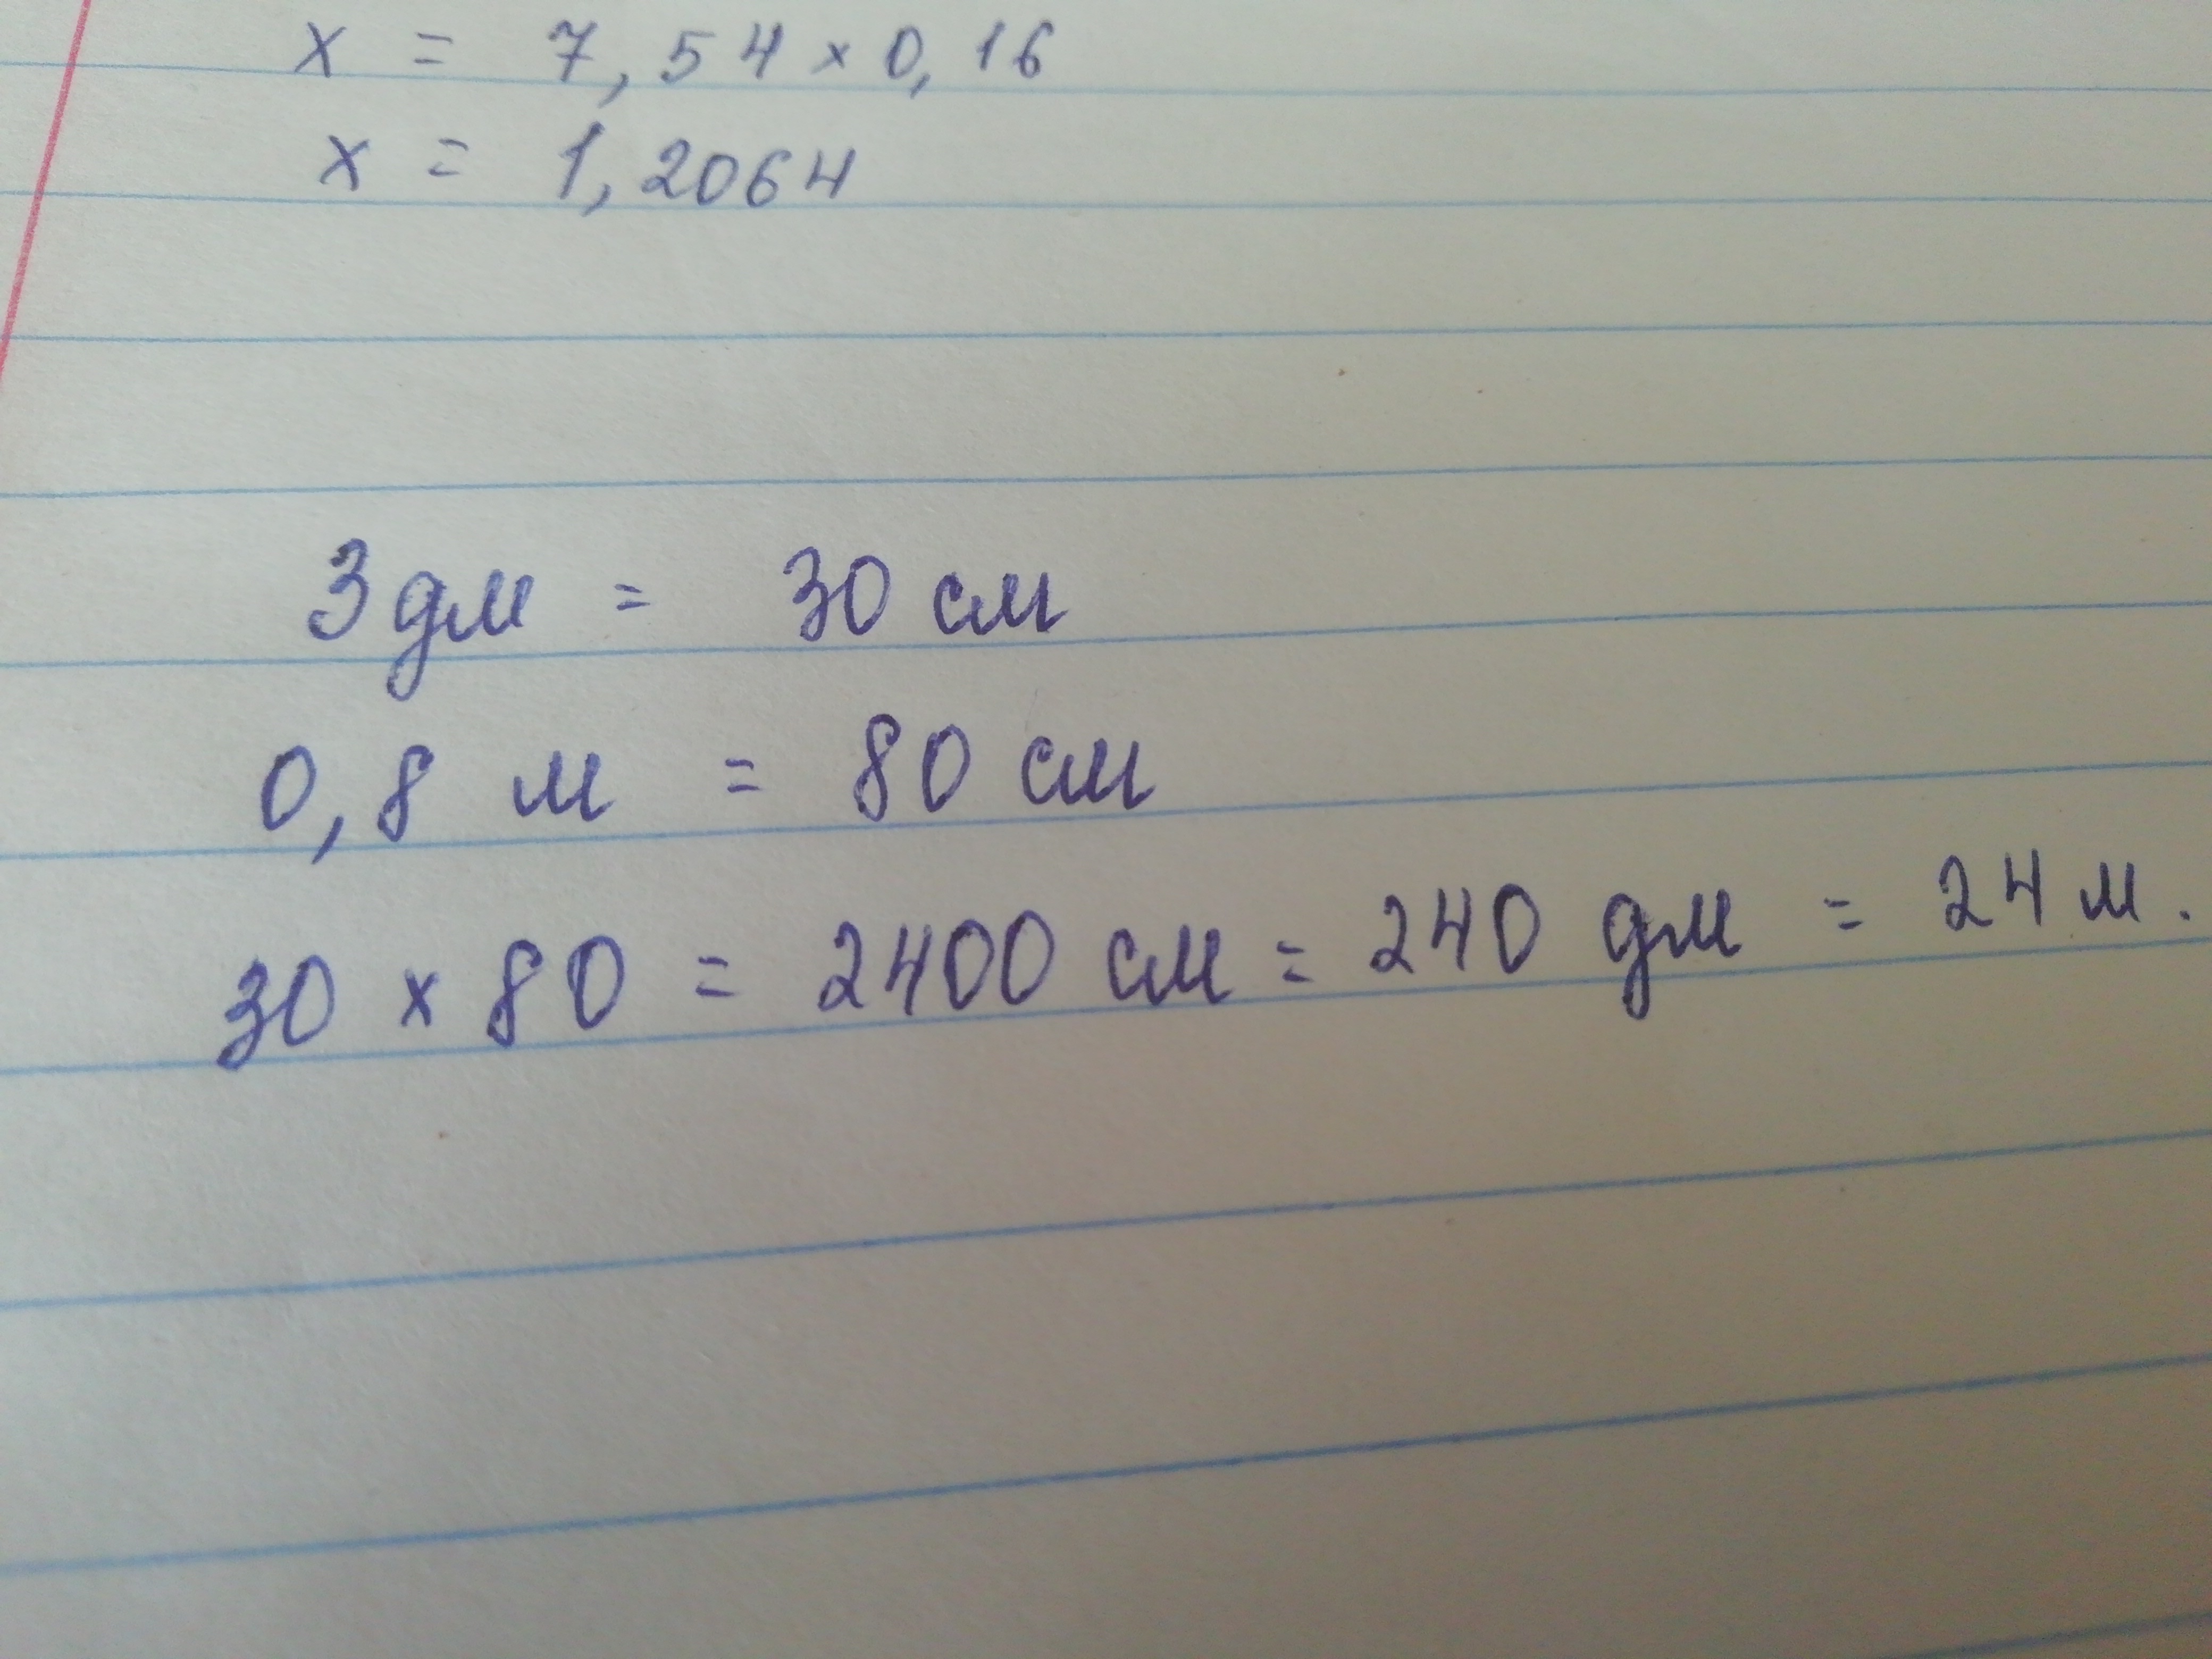 x = 7,54 × 0,16
x = 1,2064
3 дм = 30 см
0,8 м = 80 см
30 × 80 = 2400 см = 240 дм = 24 м.